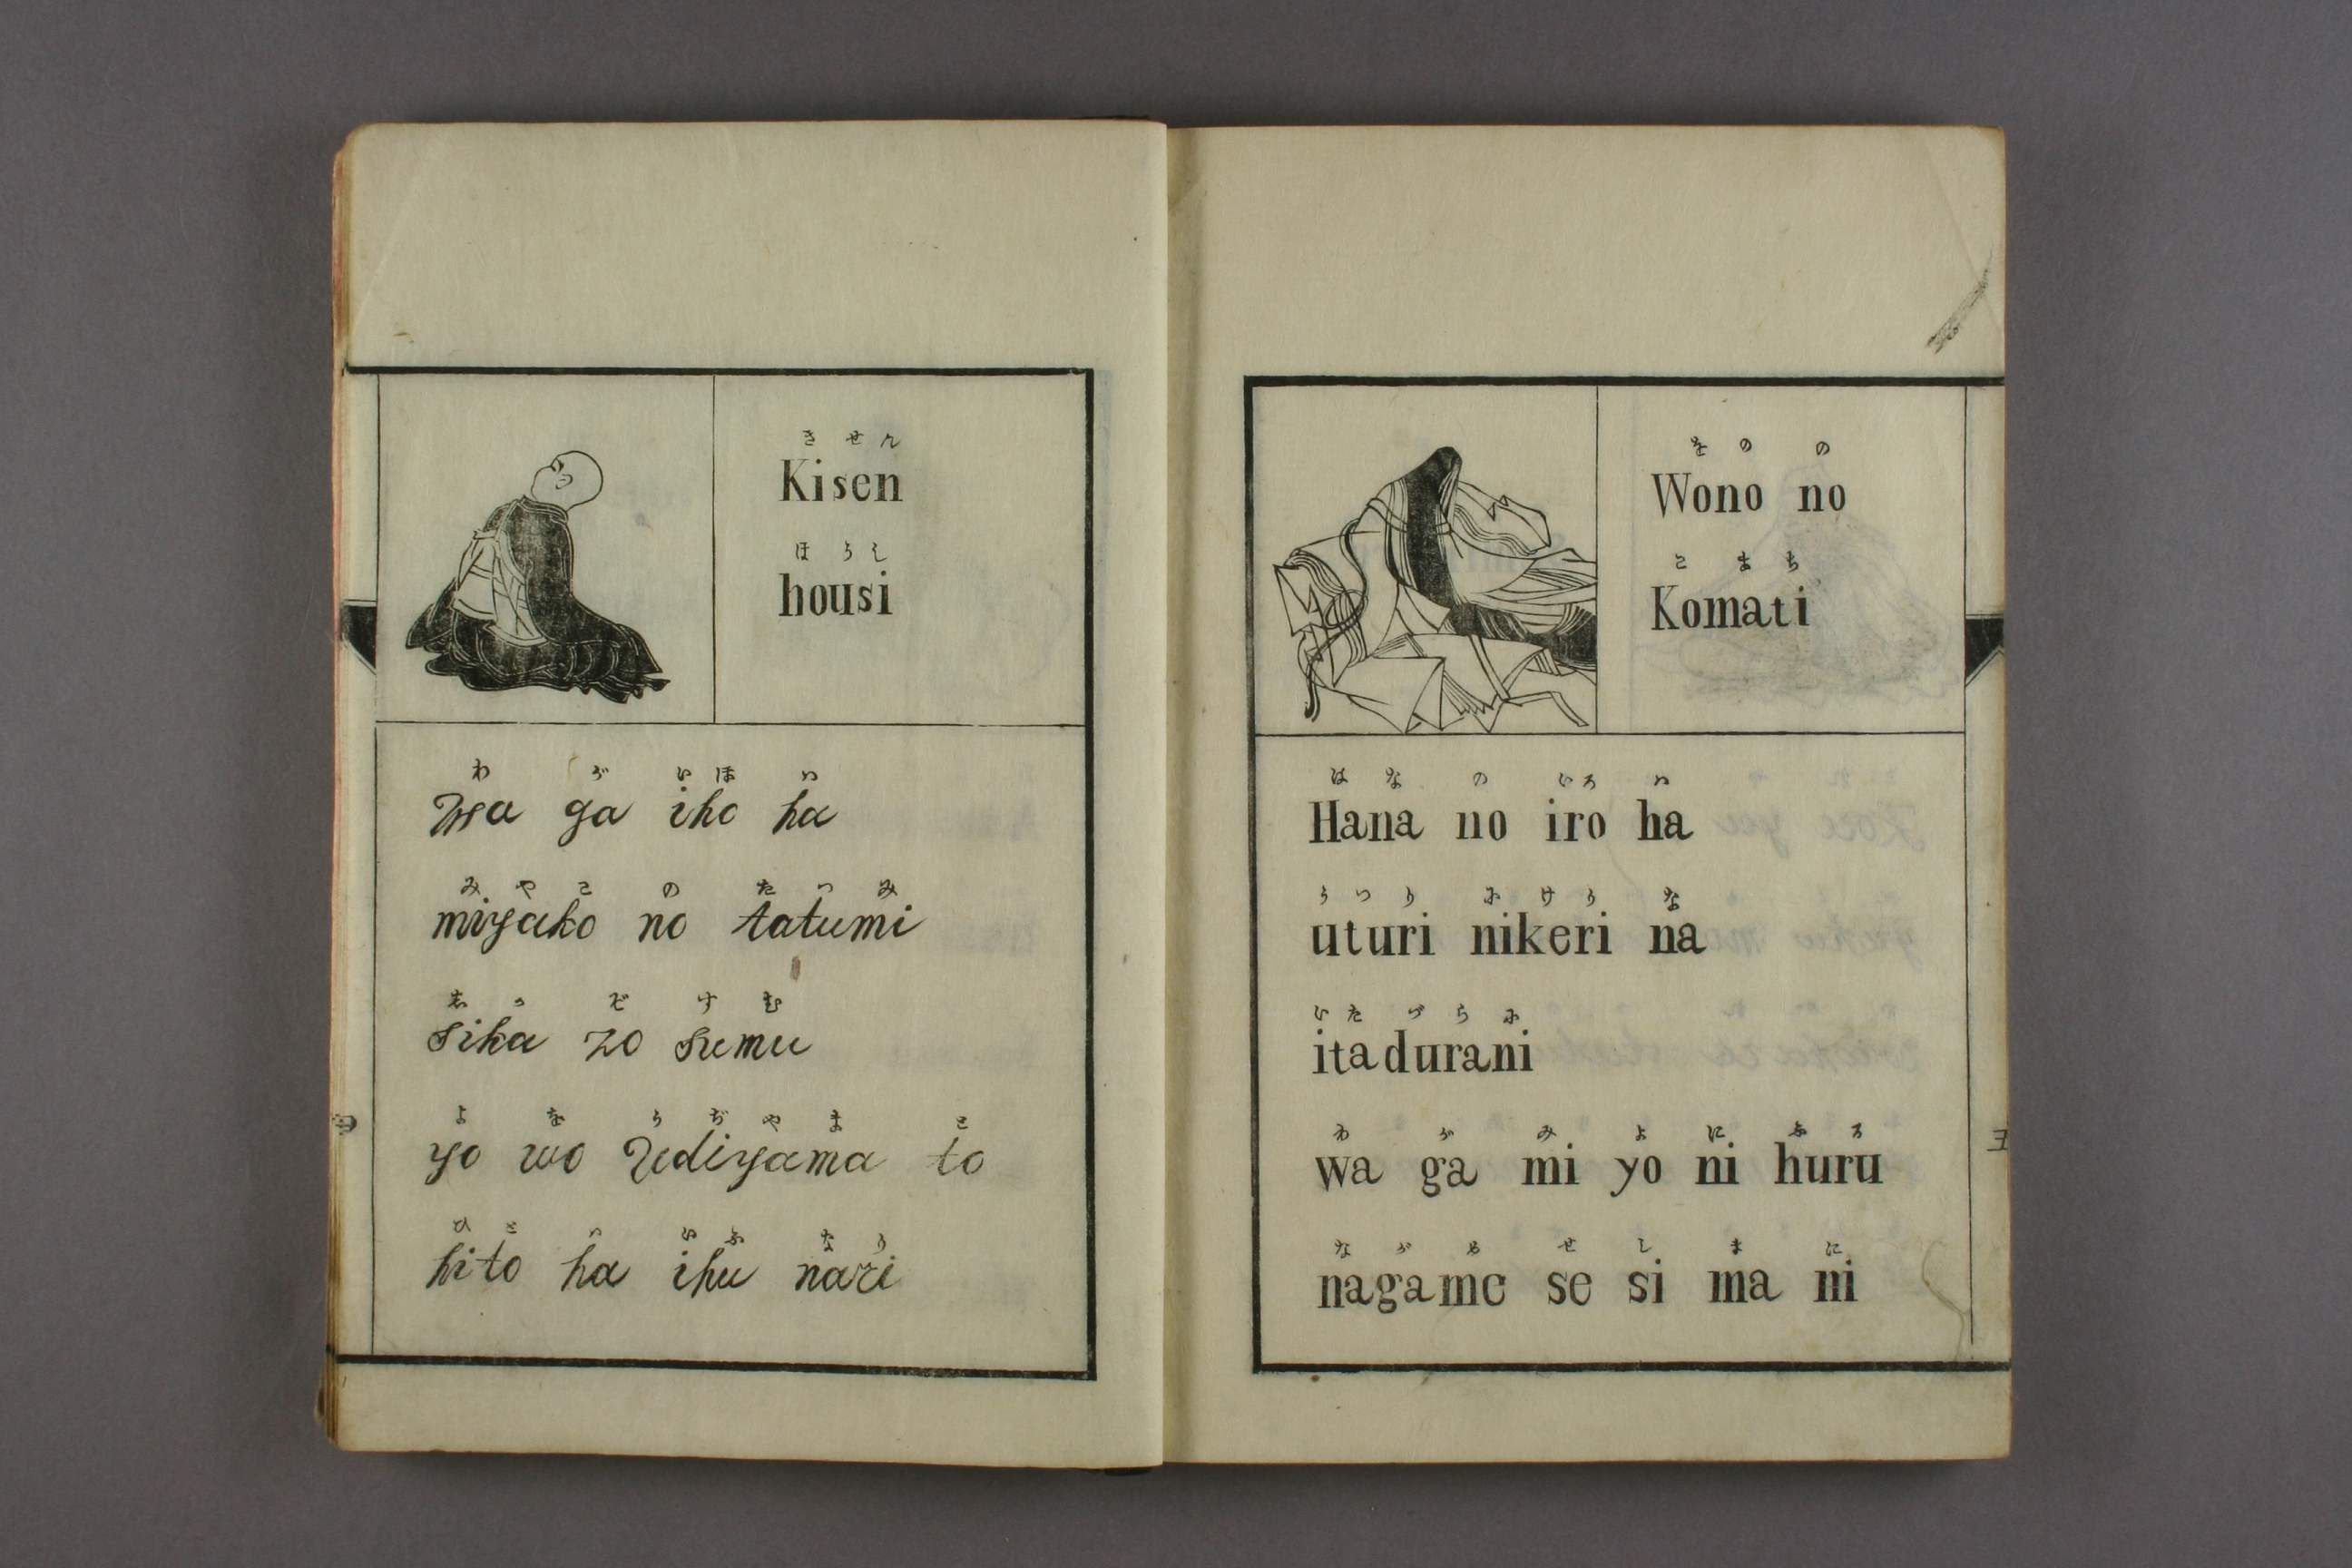 きせん
Kisen
ほうし
housi
わ が いほ ハ
wa ga iho ha
みやこ の たつミ
miyako no tatumi
志か ぞ すむ
sika zo sumu
よ を うぢやま と
yo wo Udiyama to
ひと ハ いふ なり
hito ha ihu nari
をの の
Wono no
こまち
Komati
はな の いろ ハ
Hana no iro ha
うつり にけり な
uturi nikeri na
いたづらに
itadurani
わ が み よ に ふる
wa ga mi yo ni huru
ながめ せ し ま に
nagame se si ma ni
五